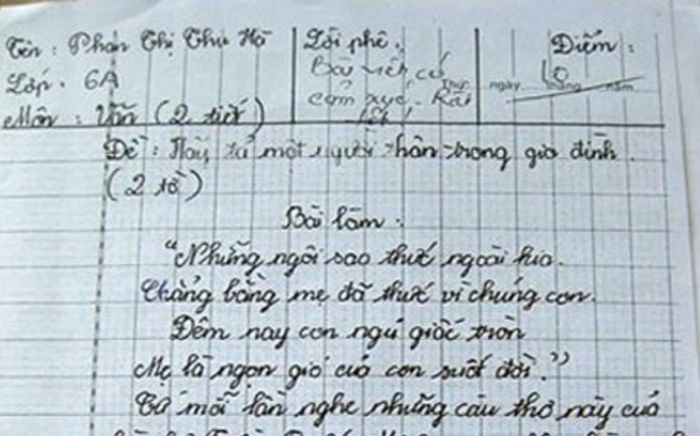 Tên : Phan Thị Thu Hà
Lời phê.
Điểm :
Lớp . 6A
Bài viết có
cảm xúc. Rất
tốt!
Thứ ngày tháng năm
10
Môn : Văn (2 tiết)
Đề : Hãy tả một người thân trong gia đình.
(2 tờ)
Bài làm :
"Những ngôi sao thức ngoài kia.
Chẳng bằng mẹ đã thức vì chúng con.
Đêm nay con ngủ giấc tròn
Mẹ là ngọn gió của con suốt đời."
Cứ mỗi lần nghe những câu thơ này của